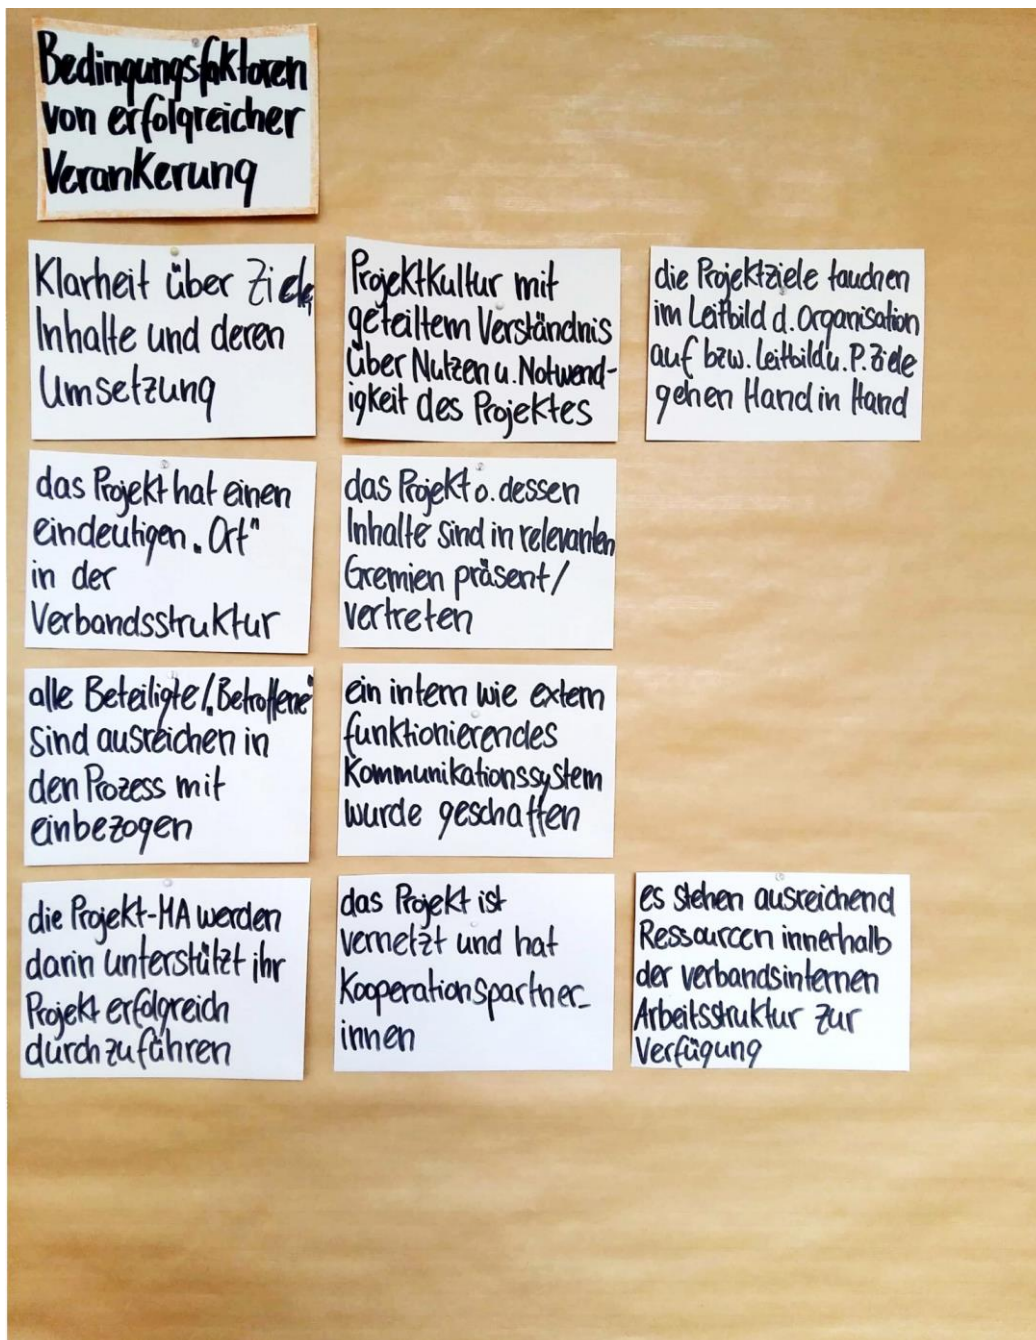 Bedingungsfaktoren
von erfolgreicher
Verankerung
Klarheit über Ziele,
Inhalte und deren
Umsetzung
Projektkultur mit
geteiltem Verständnis
über Nutzen u. Notwend-
igkeit des Projektes
die Projektziele tauchen
im Leitbild d. Organisation
auf bzw. Leitbild u. P. Ziele
gehen Hand in Hand
das Projekt hat einen
eindeutigen „Ort"
in der
Verbandsstruktur
das Projekt o. dessen
Inhalte sind in relevanten
Gremien präsent/
vertreten
alle Beteiligte/„Betroffene"
sind ausreichen in
den Prozess mit
einbezogen
ein intern wie extern
funktionierendes
Kommunikationssystem
wurde geschaffen
die Projekt-HA werden
darin unterstützt ihr
Projekt erfolgreich
durchzuführen
das Projekt ist
vernetzt und hat
Kooperationspartner_
innen
es stehen ausreichend
Ressourcen innerhalb
der verbandsinternen
Arbeitsstruktur zur
Verfügung